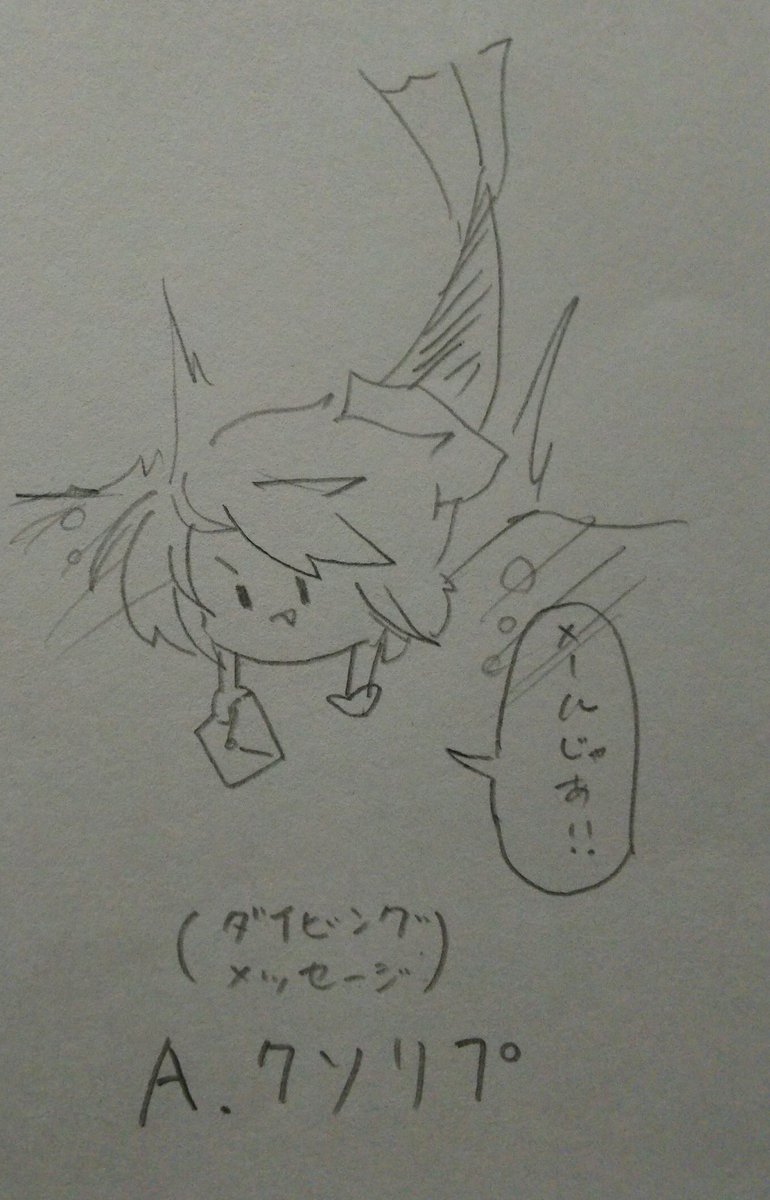 メールじゃあ!!
(ダイビング
メッセージ)
A.クソリプ